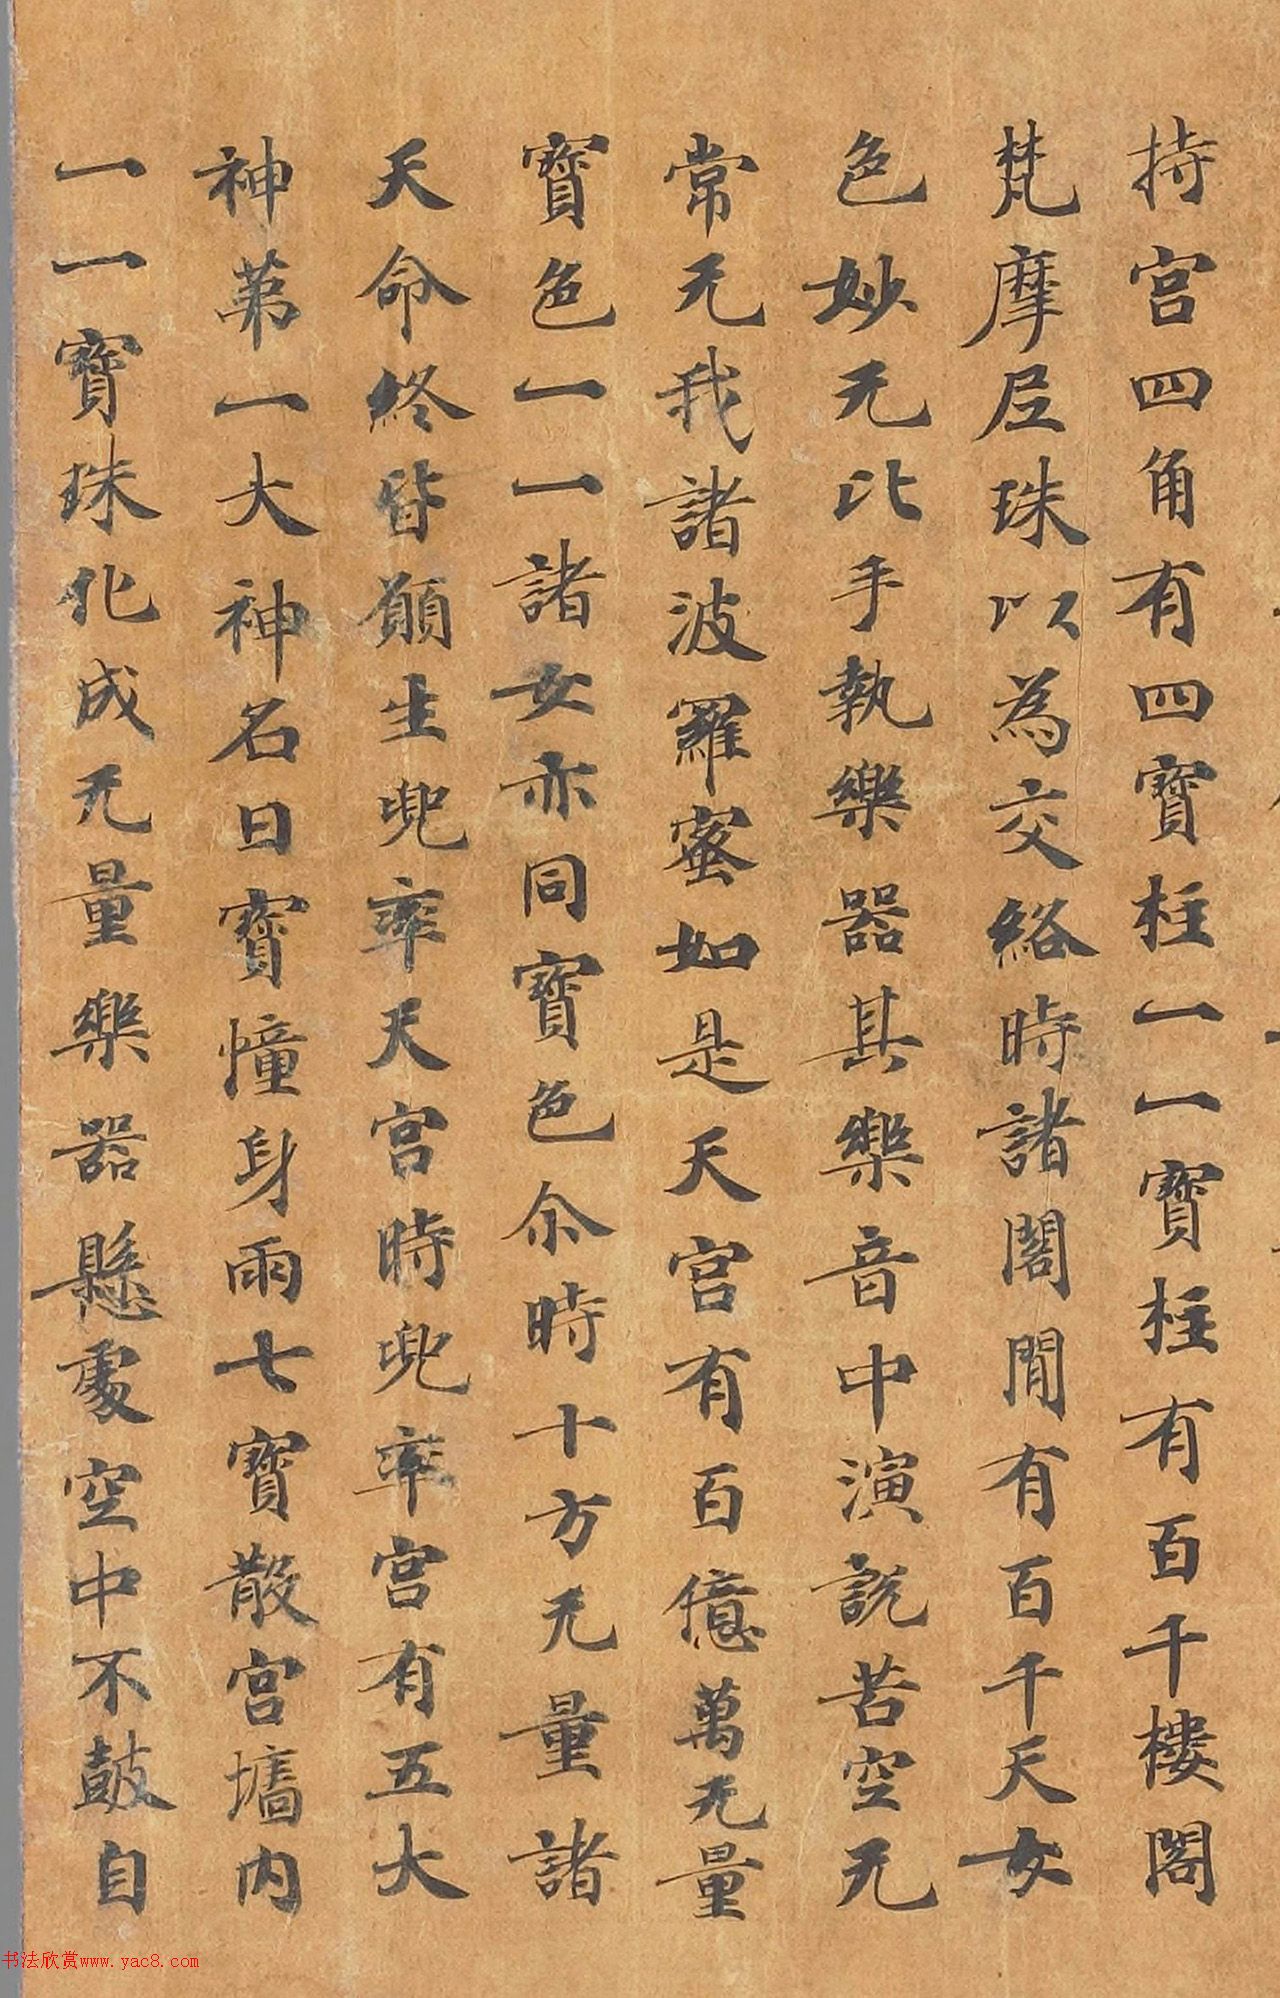 持宮四角有四寶柱一一寶柱有百千樓閣
梵摩尼珠以為交絡時諸閣閒有百千天女
色妙无比手執樂器其樂音中演說苦空无
常无我諸波羅蜜如是天宮有百億萬无量
寶色一一諸女亦同寶色尒時十方无量諸
天命終皆願生兜率天宮時兜率宮有五大
神第一大神名曰寶幢身雨七寶散宮墻內
一一寶珠化成无量樂器懸處空中不鼓自
书法欣赏www.yac8.com